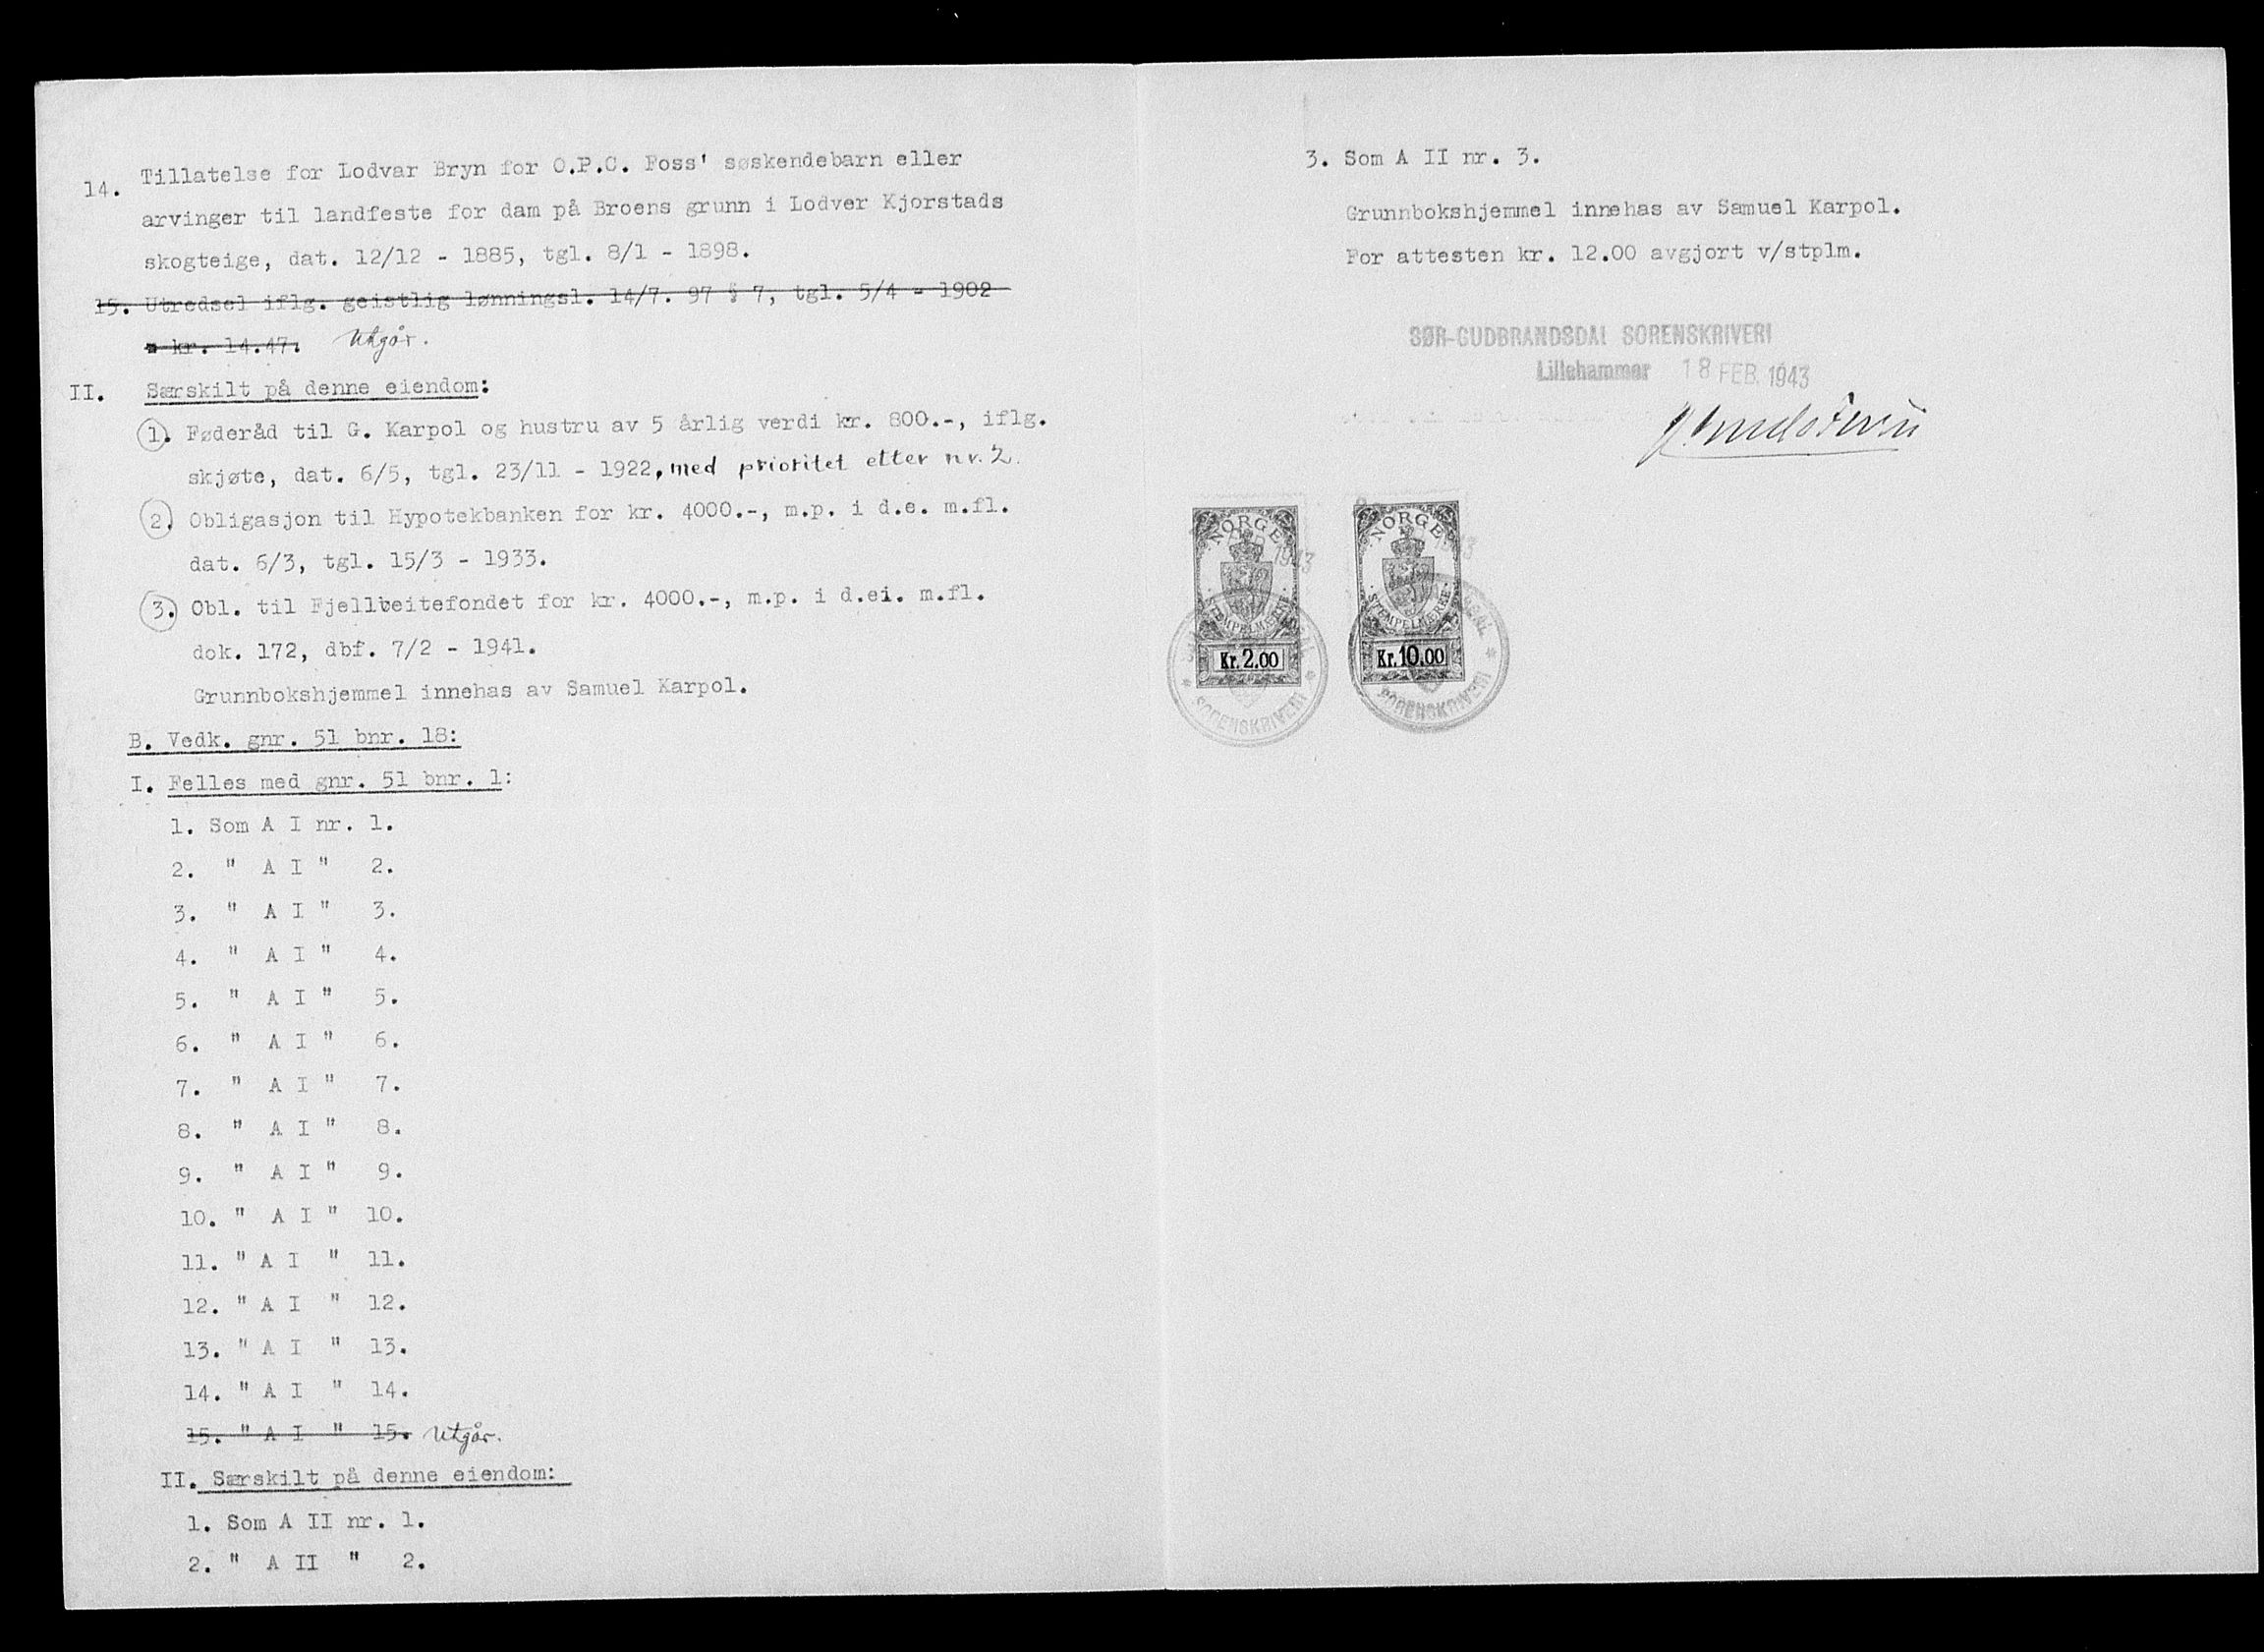 14. Tillatelse for Lodvar Bryn for O.P.C. Foss' søskendebarn eller
arvinger til landfeste for dam på Broens grunn i Lodver Kjorstads
skogteige, dat. 12/12 - 1885, tgl. 8/1 - 1898.
15. Utredsel iflg. geistlig lønningsl. 14/7. 97 § 7, tgl. 5/4 - 1902
kr. 14.47. Utgår.
II. Særskilt på denne eiendom:
1. Føderåd til G. Karpol og hustru av 5 årlig verdi kr. 800.-, iflg.
skjøte, dat. 6/5, tgl. 23/11 - 1922, med prioritet etter nr. 2.
2. Obligasjon til Hypotekbanken for kr. 4000.-, m.p. i d.e. m.fl.
dat. 6/3, tgl. 15/3 - 1933.
3. Obl. til Fjellbeitefondet for kr. 4000.-, m.p. i d.ei. m.fl.
dok. 172, dbf. 7/2 - 1941.
Grunnbokshjemmel innehas av Samuel Karpol.
B. Vedk. gnr. 51 bnr. 18:
I. Felles med gnr. 51 bnr. 1:
1. Som A I nr. 1.
2. " A I " 2.
3. " A I " 3.
4. " A I " 4.
5. " A I " 5.
6. " A I " 6.
7. " A I " 7.
8. " A I " 8.
9. " A I " 9.
10. " A I " 10.
11. " A I " 11.
12. " A I " 12.
13. " A I " 13.
14. " A I " 14.
15. " A I " 15. Utgår.
II. Særskilt på denne eiendom:
1. Som A II nr. 1.
2. " A II " 2.
3. Som A II nr. 3.
Grunnbokshjemmel innehas av Samuel Karpol.
For attesten kr. 12.00 avgjort v/stplm.
SØR-GUDBRANDSDAL SORENSKRIVERI
Lillehammer 18 FEB. 1943
NORGE
1943
STEMPELMERKE
Kr. 2.00
SORENSKRIVERI
NORGE
STEMPELMERKE
Kr. 10.00
SORENSKRIVERI